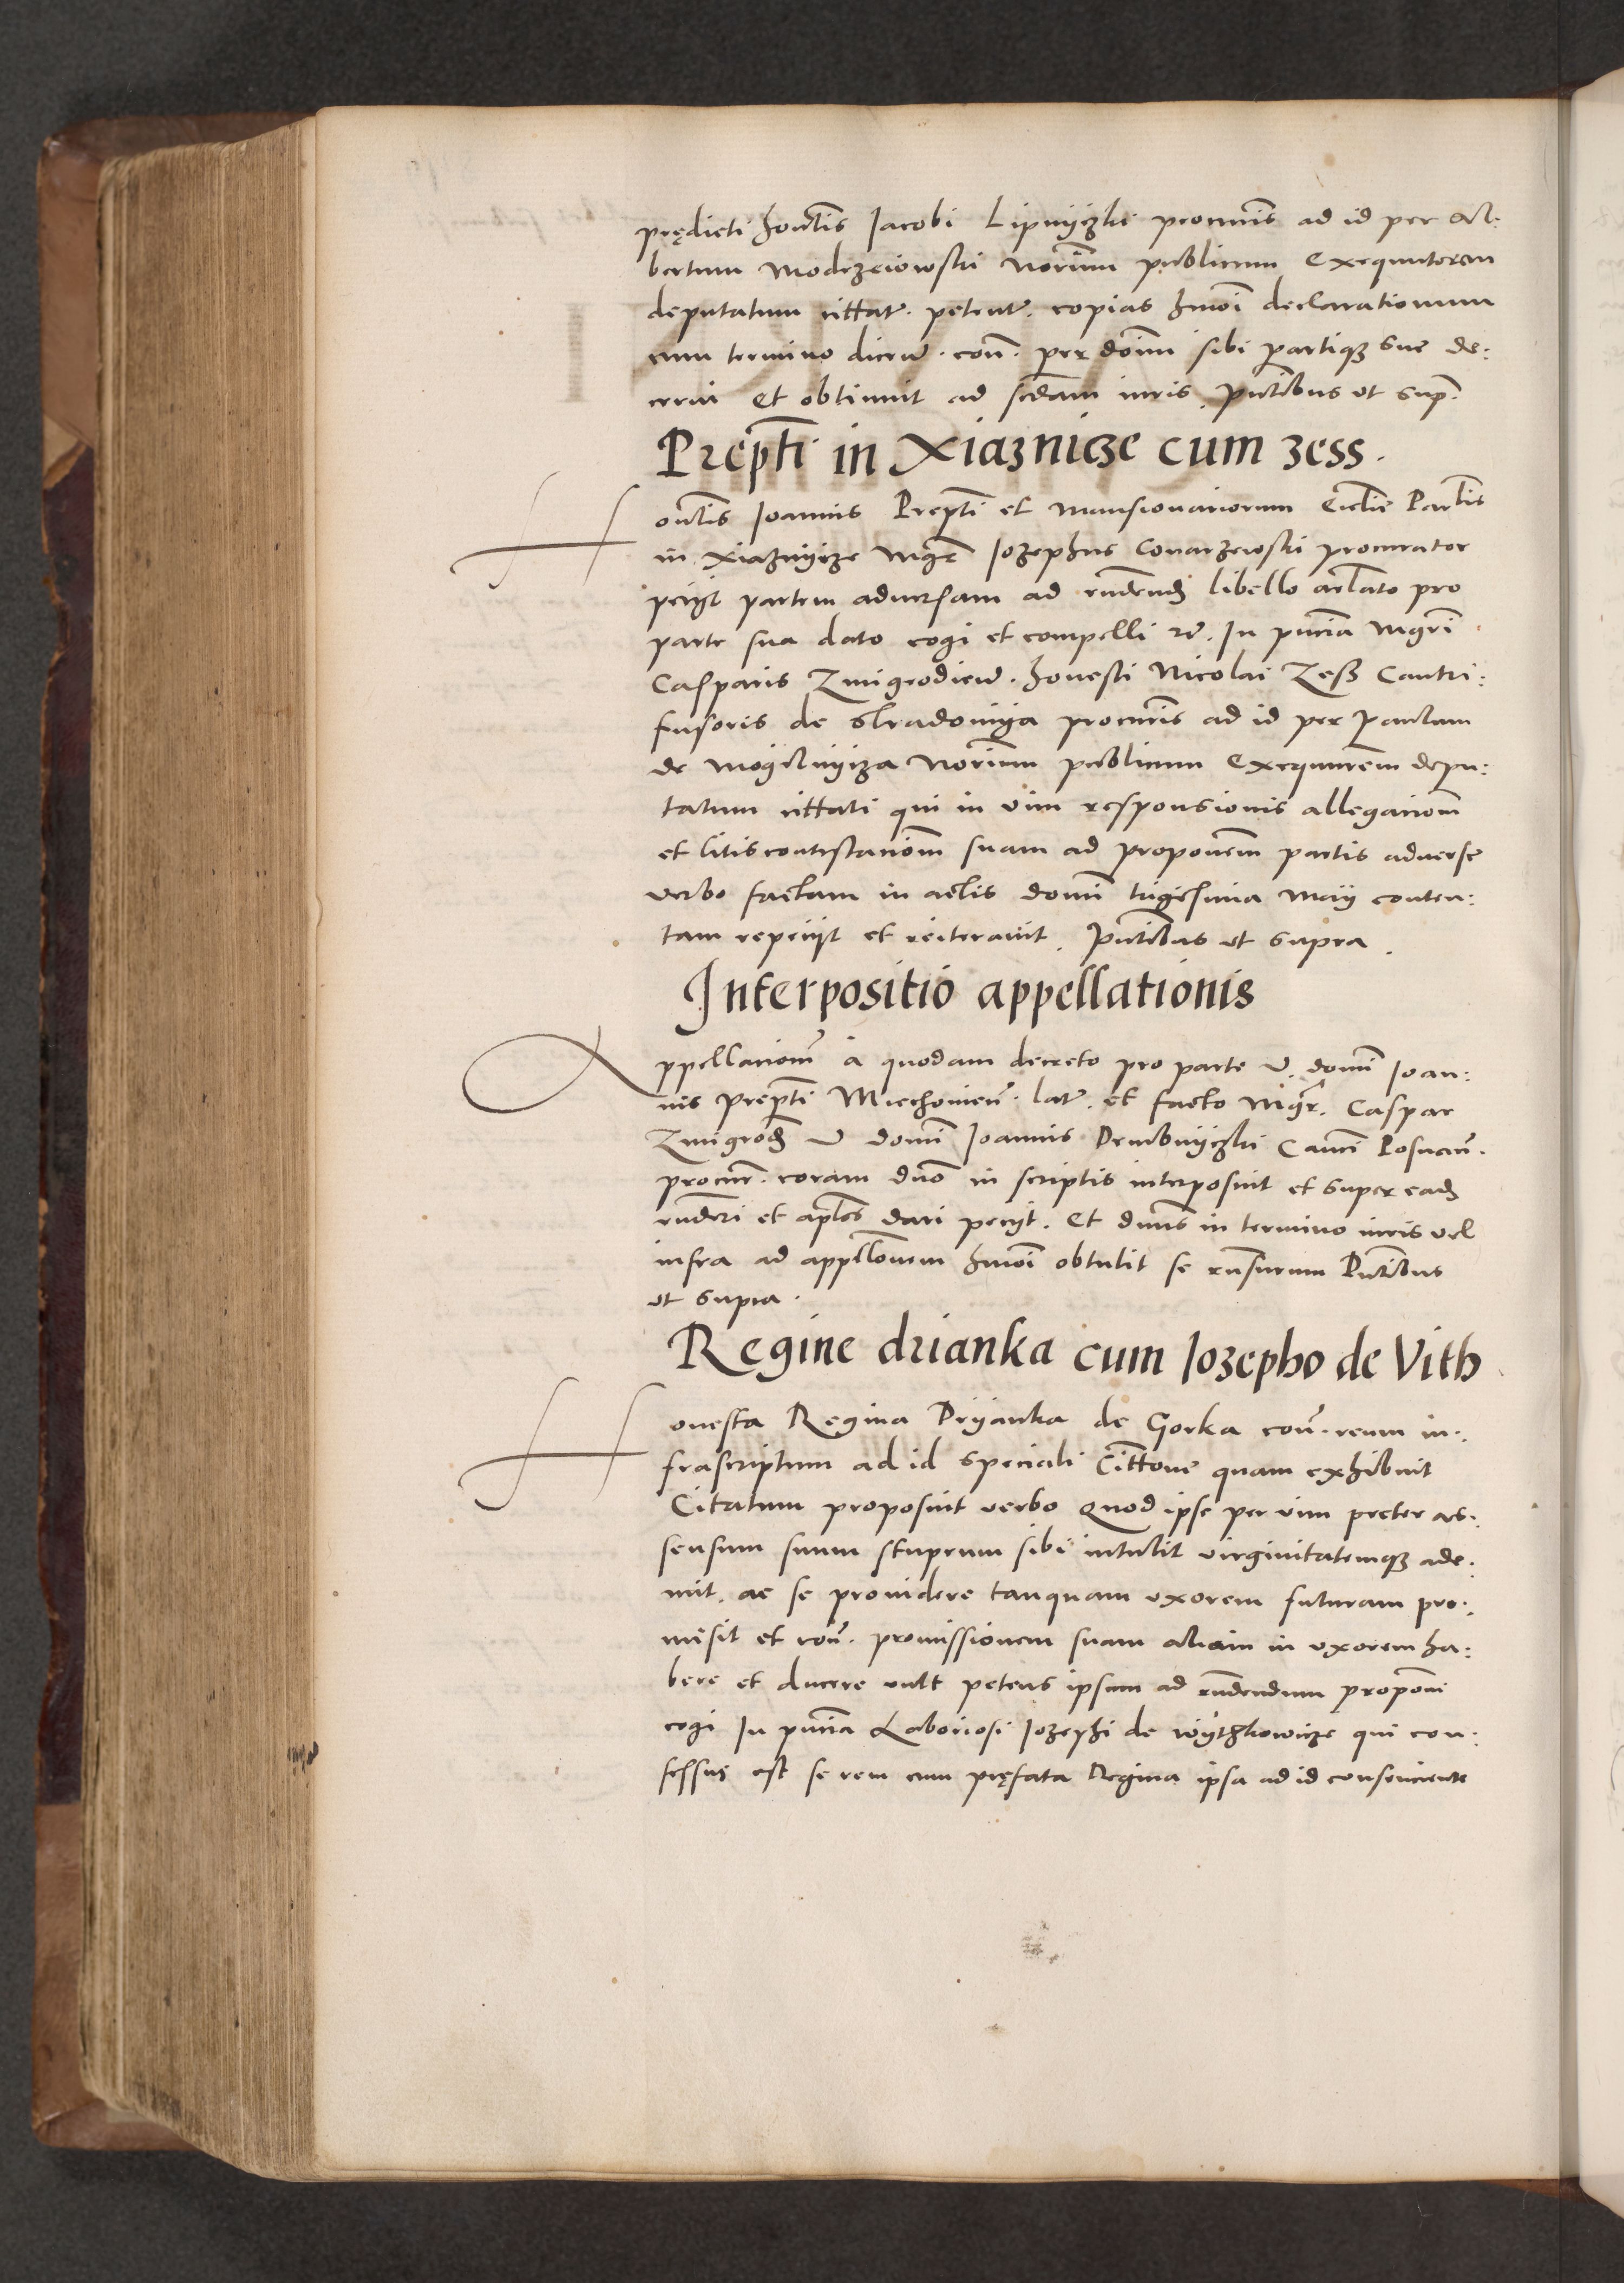 prędicti hontis Iacobi Lipnyczki procuris ad id per Al:
bertum Modrzeiowski Norium publicum Exequutorem
deputatum cittatẽ. petentẽ. copias hmoi declarationum
cum termino dicendẽ. con̄. per doim sibi partiqʒ sue de:
cerni et obtinuit ad sedam iuris. pntibus ut supˢ.
Prepti in Xiaznicze cum zess.
Hontis Joannis Prepti et mansionariorum Ecclie Parlis
in Xiaznycze Mgr Jozephus Conarzewski procurator
petyt partem adversam ad rndendʒ libello arlato pro
parte sua dato cogi et compelli rē. In pncia Mgri
Casparis Zmigrodicẽ. honesti Nicolai Zess Cantri:
fusoris de Stradomya procuris ad id per Paulum
de Mogilnycza Norium publicum Exequutrem depu:
tatum cittati qui in vim responsionis allegaciom
et litiscontestaciom suam ad proponem partis adverse
verbo factam in actis domi trigesima Maÿ conten:
tam repetyt et reiteravit. Pntibus ut supra.
Interpositio appellationis
Appellaciom a quodam decreto pro parte V. domi Joan:
nis Prepti Miechoviens̃. latẽ. et facto Mgr. Caspar
Zmigrodʒ V domi Joannis Drmbnyczki Canci Posnan̄.
procur̃. coram dno in scriptis interposuit et super eadʒ
rnderi et aplos dari petyt. Et dnus in termino iuris vel
infra ad appllonem hmoi obtulit se rnsurum Pntibus
ut supra.
Regine drianka cum Jozepho de Vith
Honesta Regina Dryanka de Gorka con̄. reum in:
frascriptum ad id speciali Cittone quam exhibuit
Citatum proposuit verbo Quod ipse per vim preter as:
sensum suum stuprum sibi intulit virginitatemqʒ ade:
mit. ac se providere tanquam uxorem futuram pro:
misit et con̄. promissionem suam aliam in uxorem ha:
bere et ducere vult petens ipsum ad rndendum proponi
cogi In pncia Laboriosi Jozephi de Wythkowicze qui con:
fessus est se rem cum pręfata Regina ipsa ad id consenciente